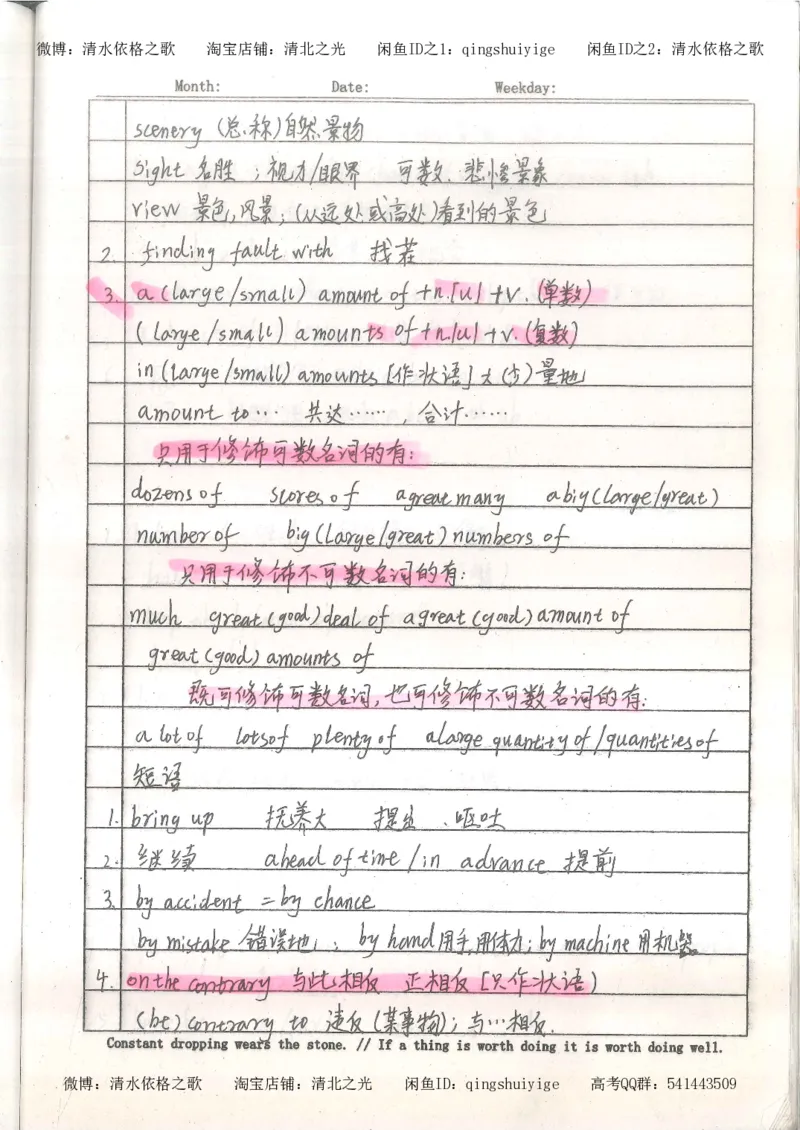 微博：清水依格之歌 淘宝店铺：清北之光 闲鱼ID之1：qingshuiyige 闲鱼ID之2：清水依格之歌
Month: Date: Weekday:
scenery (总称)自然景物
sight 名胜；视力/眼界 可数. 悲惨景象
view 景色,风景；(从远处或高处)看到的景色
2. finding fault with 找茬
3. a (large/small) amount of +n.[u] +v.(单数)
(large/small) amounts of +n.[u] +v.(复数)
in (large/small) amounts [作状语] 大(少)量地
amount to… 共达……，合计……
只用于修饰可数名词的有:
dozens of scores of a great many a big(large/great)
number of big(large/great) numbers of
只用于修饰不可数名词的有:
much great(good) deal of a great(good) amount of
great(good) amounts of
既可修饰可数名词,也可修饰不可数名词的有:
a lot of lots of plenty of a large quantity of/quantities of
短语
1. bring up 抚养大 提出、呕吐
2. 继续 ahead of time/in advance 提前
3. by accident = by chance
by mistake 错误地；by hand 用手,用体力；by machine 用机器
4. on the contrary 与此相反 正相反 [只作状语)
(be) contrary to 违反(某事物)；与…相反.
Constant dropping wears the stone. // If a thing is worth doing it is worth doing well.
微博：清水依格之歌 淘宝店铺：清北之光 闲鱼ID：qingshuiyige 高考QQ群：541443509